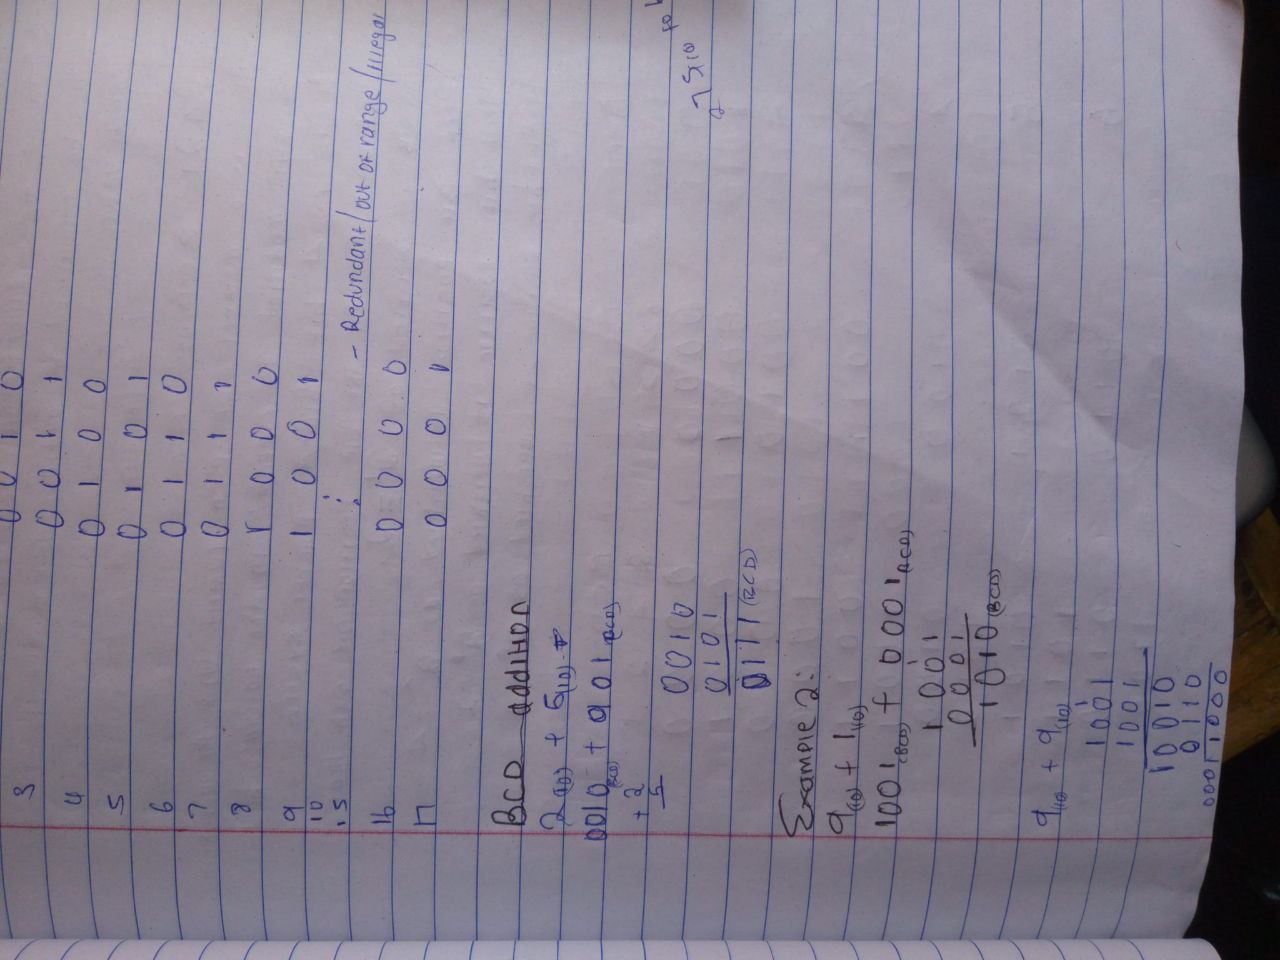 0 0 1 0
3 0 0 1 1
4 0 1 0 0
5 0 1 0 1
6 0 1 1 0
7 0 1 1 1
8 1 0 0 0
9 1 0 0 1
10
15 ⋮ - Redundant/out of range/illegal
16 0 0 0 0
17 0 0 0 1
BCD addition
2(10) + 5(10)
0010(BCD) + 0101(BCD)
+ 2
5
0010
0101
0111(BCD)
275(10) to
Example 2:
9(10) + 1(10)
1001(BCD) + 0001(BCD)
1
1001
0001
1010(BCD)
9(10) + 9(10)
1
1001
1001
10010
0110
0001 1000